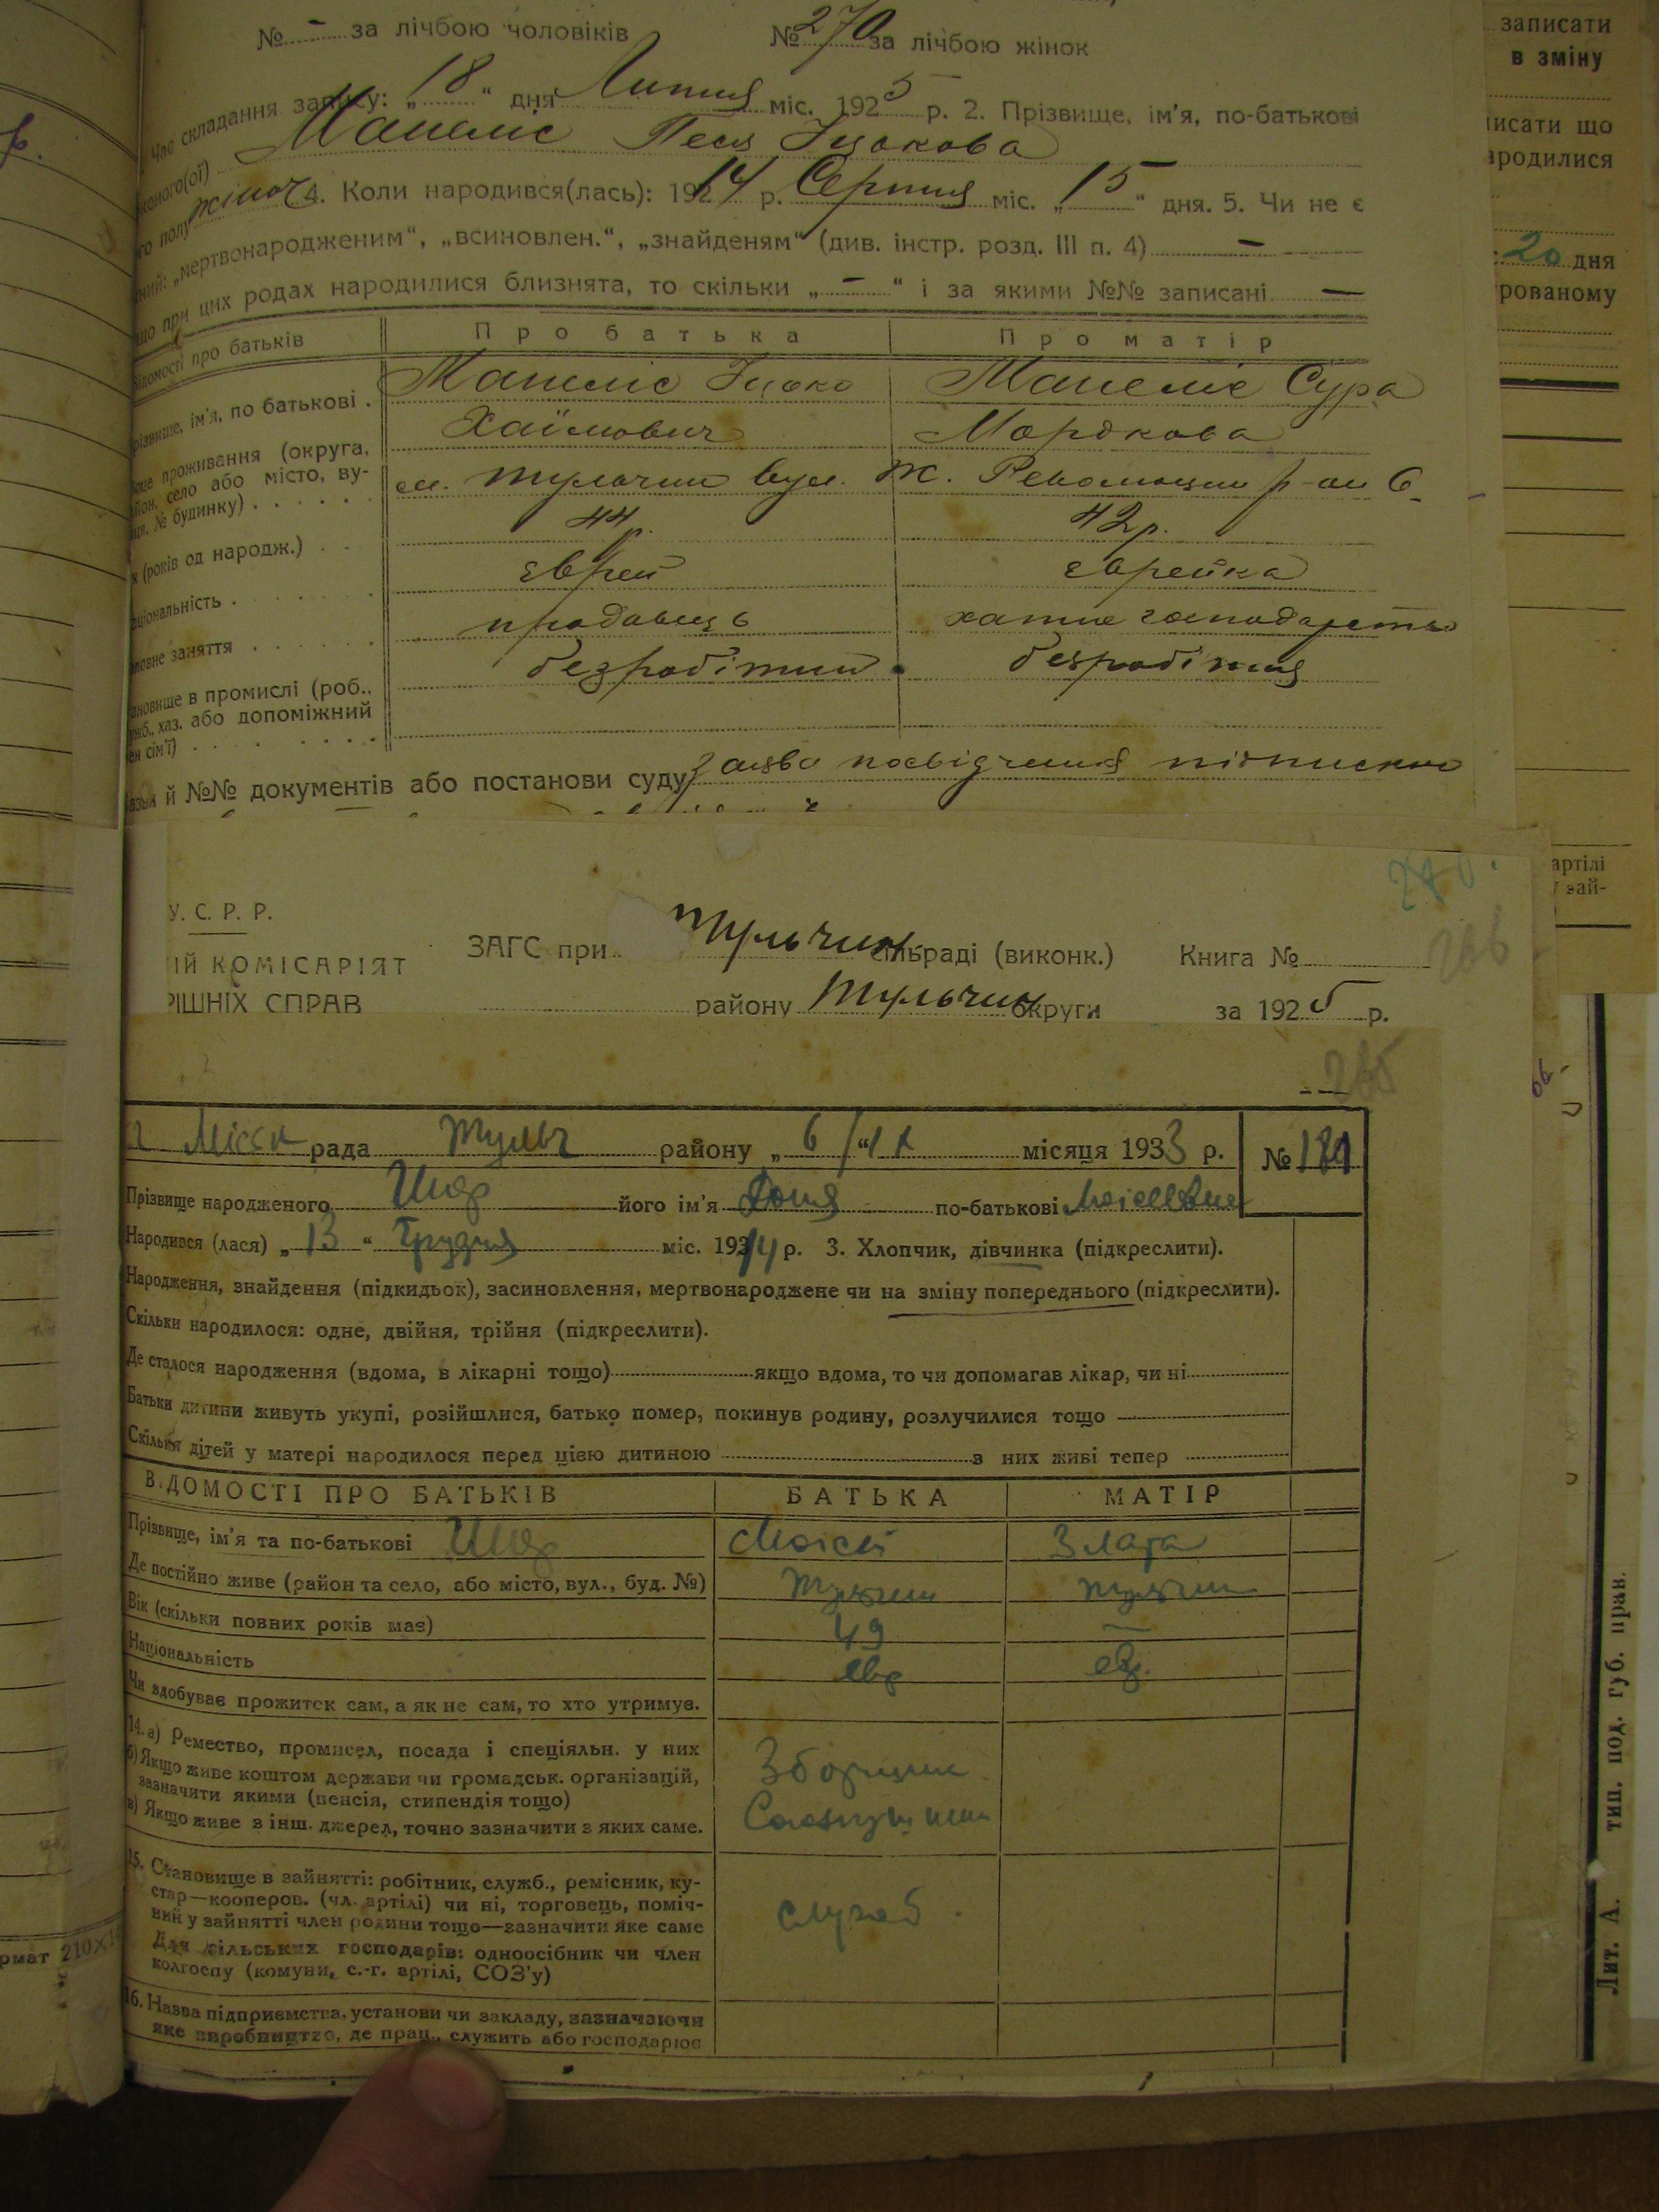 № - за лічбою чоловіків № 270 за лічбою жінок
Час складання запису: „18“ дня Липня міс. 1925 р. 2. Прізвище, ім'я, по-батькові
Песя Іцокова
го полу жіноч 4. Коли народився(лась): 1914 р. Серпня міс. „15“ дня. 5. Чи не є
„мертвонародженим“, „всиновлен.“, „знайденям“ (див. інстр. розд. III п. 4) —
при цих родах народилися близнята, то скільки „—“ і за якими №№ записані —
Відомості про батьків Про батька Про матір
різвище, ім'я, по батькові . Іцоко Сура
Хаїмович Мордкова
проживання (округа,
село або місто, ву-
№ будинку) . . . . . м. Тульчин вул. Ж. Революции р-он 6
(років од народж.) . . 44 р. 42 р.
ціональність . єврей єврейка
заняття . . . . . . продавець хатнє господарство
ановище в промислі (роб., безробітний безробітня
хаз. або допоміжний
ен сім'ї) . . . . . . .
й №№ документів або постанови суду заява посвідчення підписки
У. С. Р. Р.
ІЙ КОМІСАРІЯТ ЗАГС при Тульчин сільраді (виконк.) Книга №
РІШНІХ СПРАВ району Тульчин округи за 1925 р.
265
Міськ рада Тульч району „6/“ IX місяця 1933 р. №
Прізвище народженого Шор його ім'я по-батькові
Народився (лася) „13“ Грудня міс. 1914 р. 3. Хлопчик, дівчинка (підкреслити).
Народження, знайдення (підкидьок), засиновлення, мертвонароджене чи на зміну попереднього (підкреслити).
Скільки народилося: одне, двійня, трійня (підкреслити).
Де сталося народження (вдома, в лікарні тощо) якщо вдома, то чи допомагав лікар, чи ні
Батьки дитини живуть укупі, розійшлися, батько помер, покинув родину, розлучилися тощо
Скільки дітей у матері народилося перед цією дитиною з них живі тепер
ВІДОМОСТІ ПРО БАТЬКІВ БАТЬКА МАТІР
Прізвище, ім'я та по-батькові Шор Моісей Злата
Де постійно живе (район та село, або місто, вул., буд. №) Тульчин Тульчин
Вік (скільки повних років має) 49 —
Національність евр евр.
Чи здобуває прожиток сам, а як не сам, то хто утримує.
14. а) Ремество, промисел, посада і спеціяльн. у них
б) Якщо живе коштом держави чи громадськ. організацій,
зазначити якими (пенсія, стипендія тощо)
в) Якщо живе з інш. джерел, точно зазначити з яких саме.
Зборщик
15. Становище в зайнятті: робітник, служб., ремісник, ку-
стар—кооперов. (чл. артілі) чи ні, торговець, поміч-
ний у зайнятті член родини тощо—зазначити яке саме
Для сільських господарів: одноосібник чи член
колгоспу (комуни, с.-г. артілі, СОЗ'у)
служб.
16. Назва підприємства, установи чи закладу, зазначаючи
яке виробництво, де прац., служить або господарює
записати
в зміну
исати що
ародилися
20 дня
рованому
артілі
зай-
Лит. А. тип. под. губ. прав.
рмат 210×